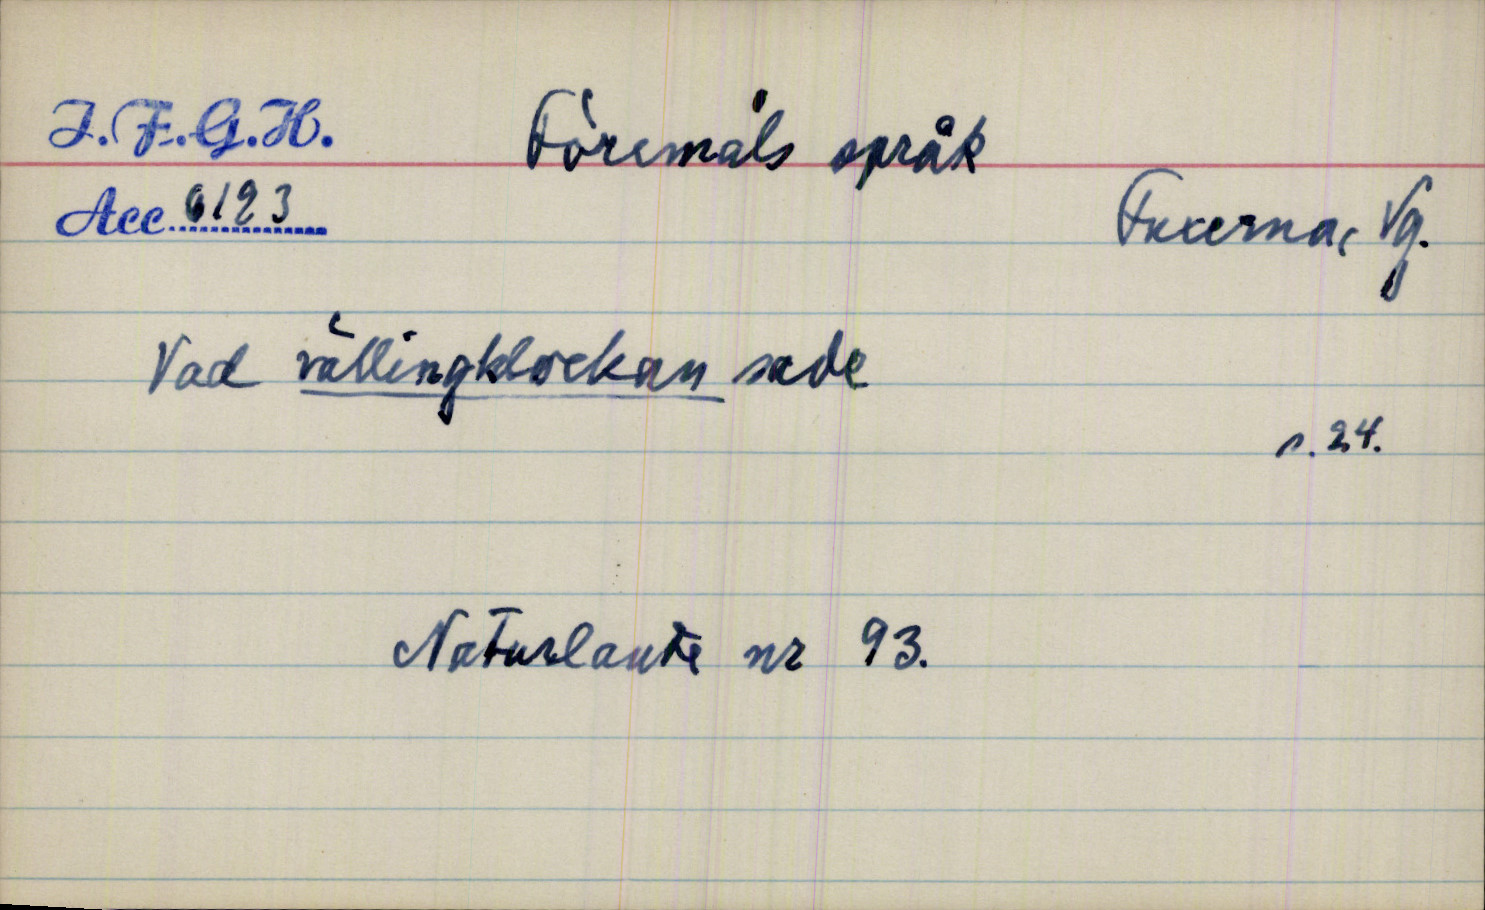 I.F.G.H.
Föremåls språk
Acc. 6123
Fuxerna, Vg.
Vad vällingklockan sade
s. 24.
Naturlaute nr 93.